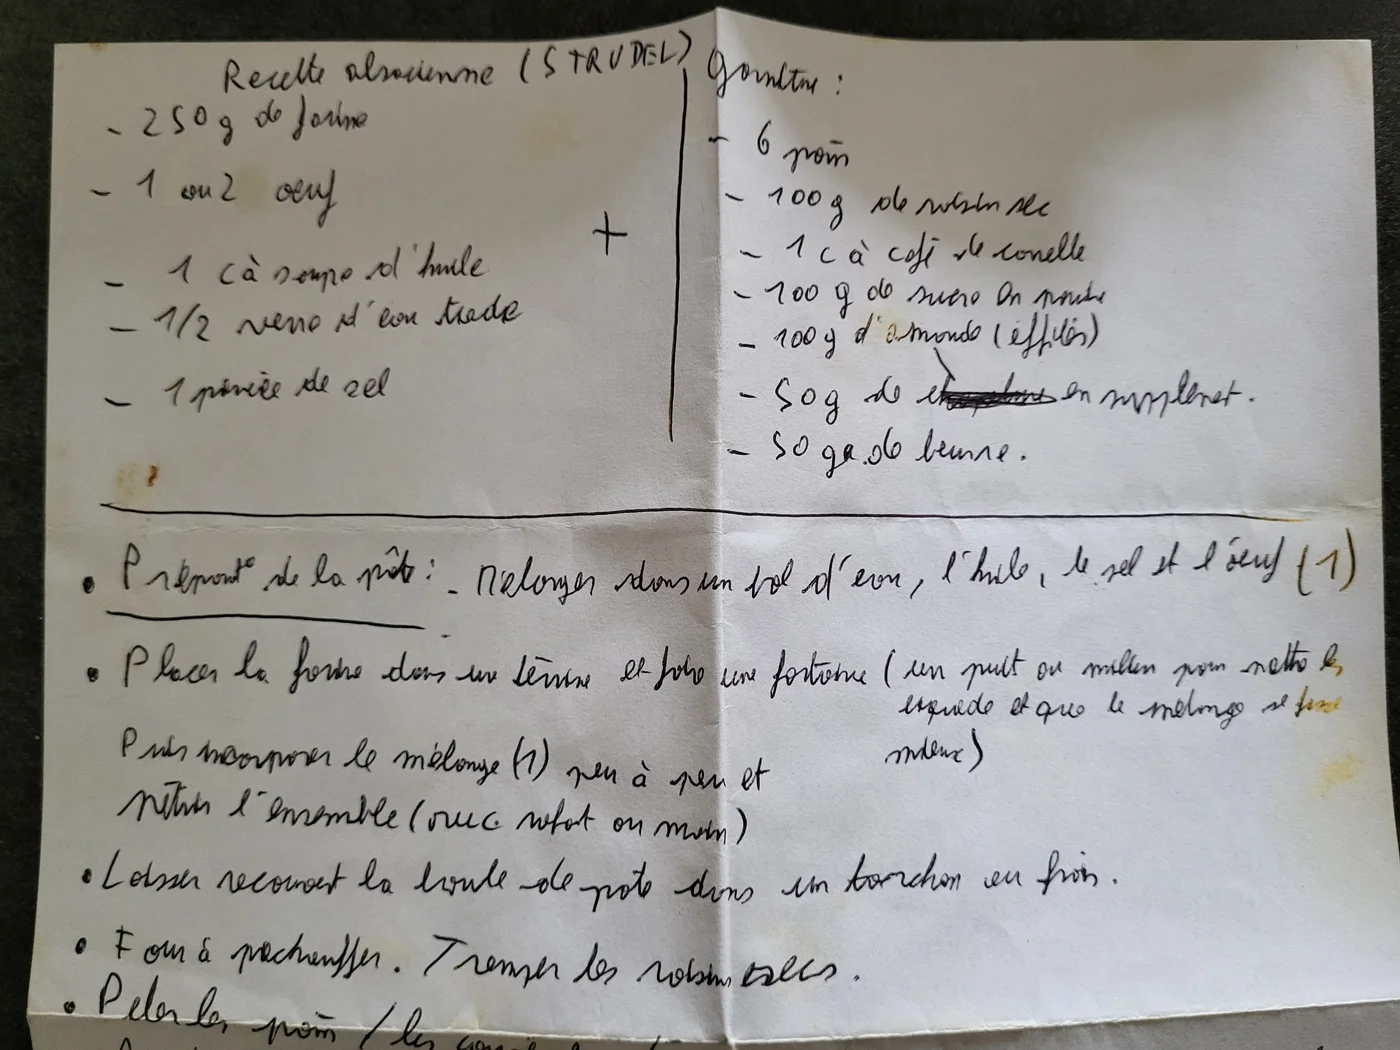 Recette alsacienne (STRUDEL)
- 250g de farine
- 1 ou 2 oeuf
- 1 c à soupe d'huile
- 1/2 verre d'eau tiède
- 1 pincée de sel
+
Garniture :
- 6 poim
- 100g de raisin sec
- 1 c à café de canelle
- 100 g de sucre en poudre
- 100g d'amande (éffilés)
- 50g de en supplément.
- 50 gr de beurre.
• Préparat° de la pâte : - Mélanger dans un bol d'eau, l'huile, le sel et l'oeuf (1)
• Placer la farine dans un térrine et faire une fontaine (un puit au milieu pour mettre les
liquide et que le mélange se fasse
mieux)
Puis incorporer le mélange (1) peu à peu et
pétrir l'ensemble (avec robot ou main)
• Laisser recouvert la boule de pâte dans un torchon au frais.
• Four à péchauffer. Tremper les raisin secs.
• Peler les poim / les